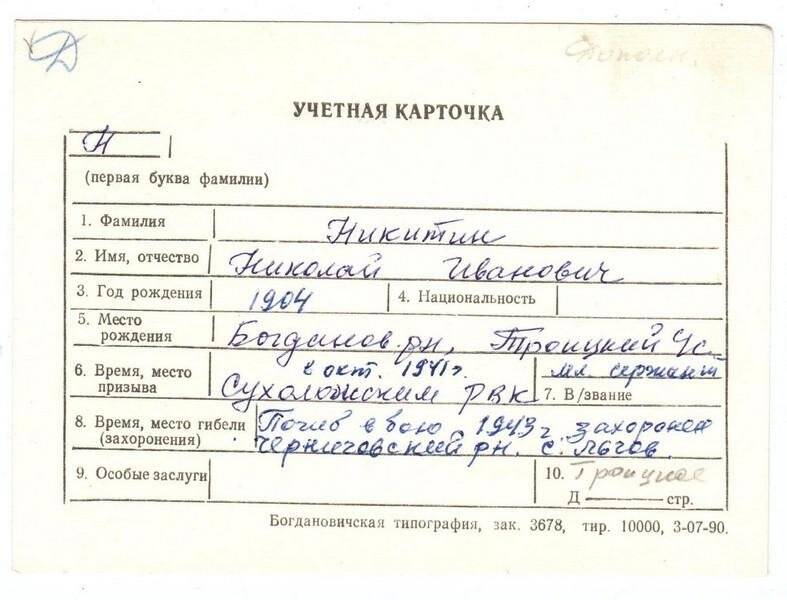 Д
Дополн.
УЧЕТНАЯ КАРТОЧКА
Н
(первая буква фамилии)
1. Фамилия Никитин
2. Имя, отчество Николай Иванович
3. Год рождения 1904 4. Национальность
5. Место рождения Богданов. рн, Троицкий
6. Время, место призыва в окт. 1941г. Сухоложским РВК
мл. сержант
7. В/звание
8. Время, место гибели (захоронения) Погиб в бою 1943 г захоронен
Черниговский рн. с. Льгов.
9. Особые заслуги
10. Троицкое
Д ——— стр.
Богдановичская типография, зак. 3678, тир. 10000, 3-07-90.